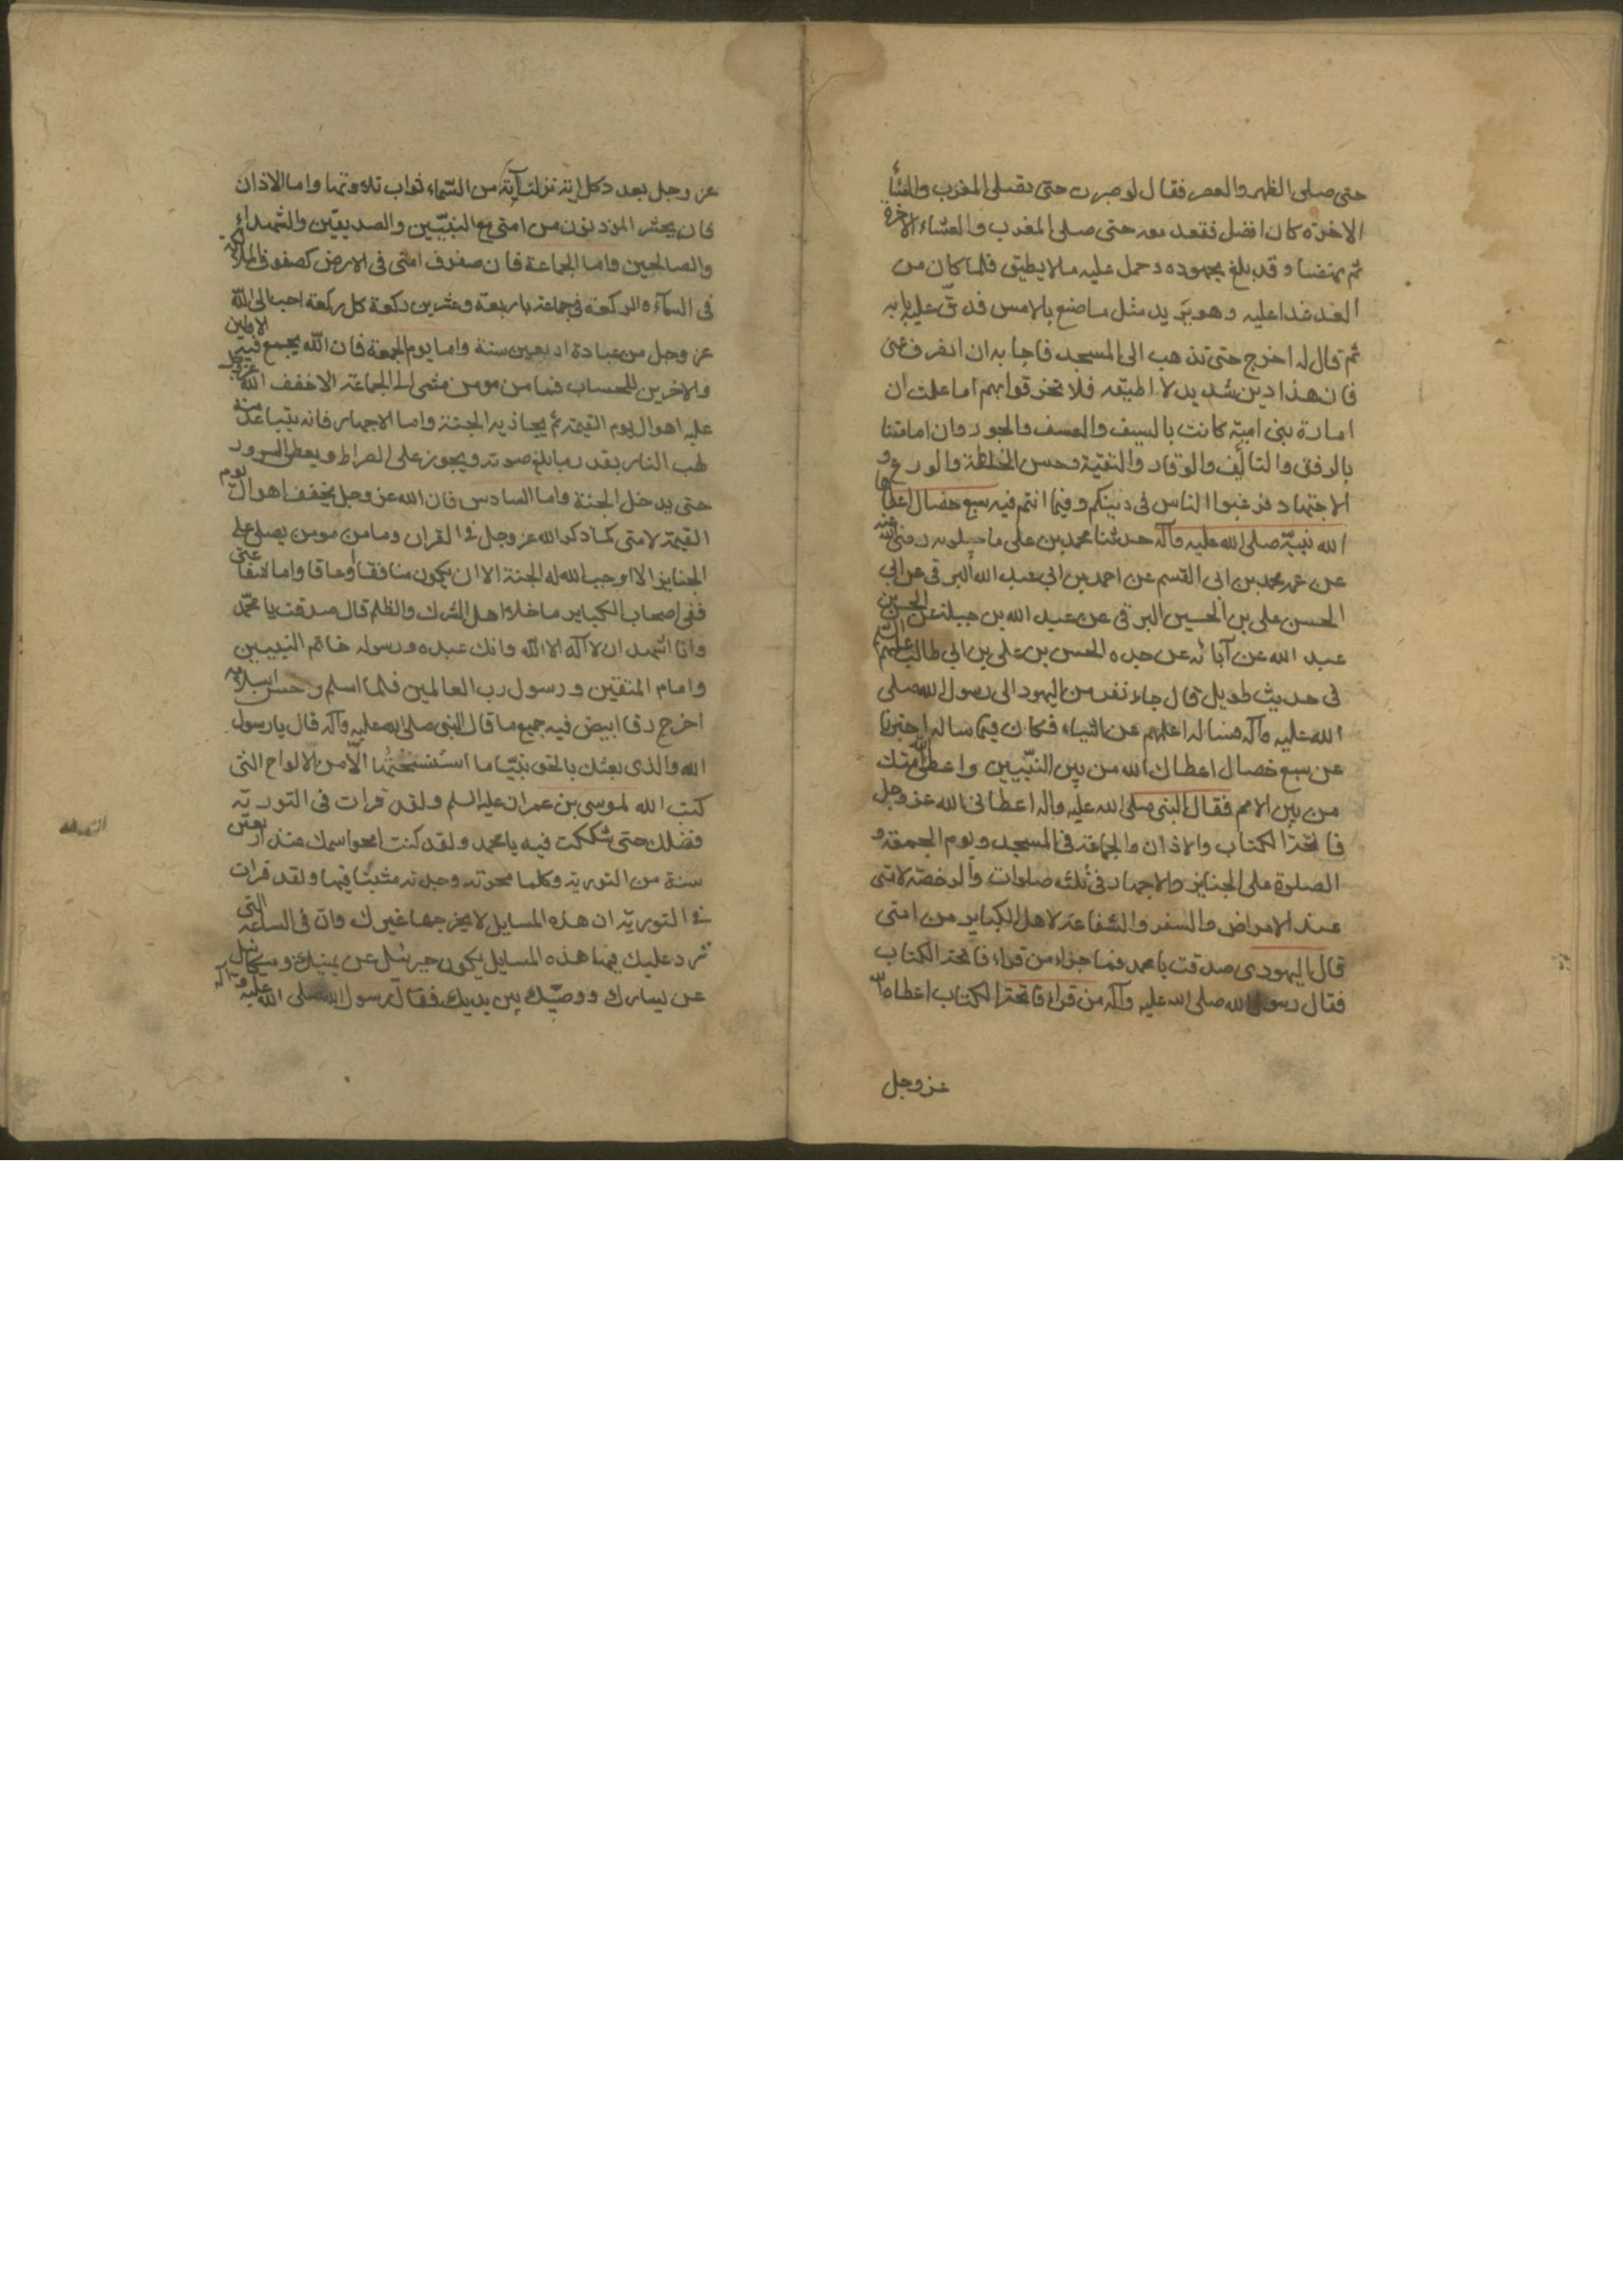 حتى صلى الظهر والعصر فقال لو صبرت حتى تصلى المغرب والعشأ
الاخرة كان افضل فقعد معه حتى صلى المغرب والعشاء الاخرة
ثم نهضا وقد بلغ مجهوده وحمل عليه ما لا يطيق فلما كان من
الغد غدا عليه وهو يريد مثل ما صنع بالامس فدقّ عليه بابه
ثم قال له اخرج حتى تذهب الى المسجد فاجابه ان انصرف عنى
فان هذا دين شديد لا اطيقه فلا تخرقوا بهم اما علمت ان
امارة بنى اميّة كانت بالسيف والعسف والجور وان امامتنا
بالرفق والتألّف والوقار والتقيّة وحسن الخلطة والورع و
الاجتهاد فرغبوا الناس فى دينكم وفيما انتم فيه سبع خصال اعطا
الله نبيّه صلى الله عليه وآله حدثنا محمد بن على ماجيلويه رضى الله عنه
عن عمه محمد بن ابى القسم عن احمد بن ابى عبد الله البرقى عن ابى
الحسن على بن الحسين البرقى عن عبد الله بن جبلة عن الحسن بن
عبد الله عن آبائه عن جده الحسن بن على بن ابى طالب عليهم السلم
فى حديث طويل قال جاء نفر من اليهود الى رسول الله صلى
الله عليه وآله فسأله اعلمهم عن اشياء فكان فيما ساله اخبرنا
عن سبع خصال اعطاك الله من بين النبّيين واعطى امتك
من بين الامم فقال النبى صلى الله عليه واله اعطانى الله عز وجل
فاتحة الكتاب والاذان والجماعة فى المسجد ويوم الجمعة و
الصلوة على الجنايز والاجهار فى ثلثه صلوات والرخصة لامتى
عند الامراض والسفر والشفاعة لاهل الكباير من امتى
قال اليهودى صدقت يا محمد فما جزاء من قراء فاتحة الكتاب
فقال رسول الله صلى الله عليه وآله من قراء فاتحة الكتاب اعطاه الله
عز وجل
عز وجل بعدد كل اية نزلت من السّماء ثواب تلاوتها واما الاذان
فان يحشر المؤذنون من امتى مع النبيّين والصديقين والشهداء
والصالحين واما الجماعة فان صفوف امتى فى الارض كصفوف الملائكة
فى السمآء والركعة فى جماعة باربعة وعشرين ركعة كل ركعة احب الى الله
عز وجل من عبادة اربعين سنة واما يوم الجمعة فان الله يجمع فيه الاولين
والاخرين للحساب فما من مومن مشى الى الجماعة الا خفف الله عز وجل
عليه اهوال يوم القيمة ثم يجازيه الجنة واما الاجهار فانه يتباعد منه
لهب النار بقدر ما بلغ صوته ويجوز على الصراط ويعطى السرور
حتى يدخل الجنة واما السادس فان الله عز وجل يخفف اهوال يوم
القيمة لامتى كما ذكر الله عز وجل فى القران وما من مومن يصلى على
الجنايز الا اوجب الله له الجنة الا ان يكون منافقا او عاقا واما شفاعتى
ففى اصحاب الكباير ما خلا اهل الشرك والظلم قال صدقت يا محمّد
وانا اشهد ان لا آله الا الله وانك عبده ورسوله خاتم النبيين
وامام المتقين ورسول رب العالمين فلما اسلم وحسن اسلامه
اخرج رقا ابيض فيه جميع ما قال النبى صلى الله عليه وآله قال يا رسول
الله والذى بعثك بالحق نبيّا ما استنسختها الّا من الالواح التى
كتب الله لموسى بن عمران عليه السلم ولقد قرات فى التورية
فضلك حتى شككت فيه يا محمد ولقد كنت امحو اسمك منذ اربعين
سنة من التورية وكلما محوته وجدته مثبتا فيها ولقد قرات
فى التورية ان هذه المسايل لا يخرجها غيرك وان فى الساعة التى
ترد عليك فيها هذه المسايل يكون جبرئيل عن يمينك وميكائيل
عن يسارك ووصيّك بين يديك فقال رسول الله صلى الله عليه وآله